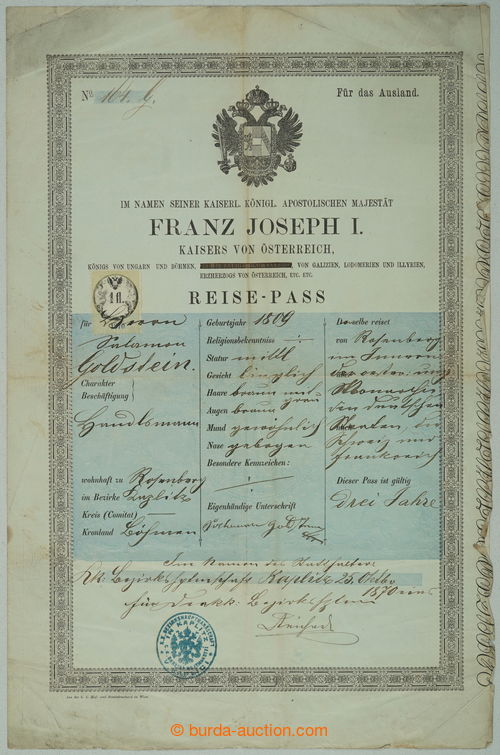 No 164. G.
Für das Ausland.
IM NAMEN SEINER KAISERL. KÖNIGL. APOSTOLISCHEN MAJESTÄT
FRANZ JOSEPH I.
KAISERS VON ÖSTERREICH,
KÖNIGS VON UNGARN UND BÖHMEN, VON GALIZIEN, LODOMERIEN UND ILLYRIEN,
ERZHERZOGS VON ÖSTERREICH, ETC. ETC.
REISE-PASS
1 fl.
für Herrn
Salamon
Goldstein.
Charakter
Beschäftigung
Handelsmann
wohnhaft zu Rosenberg
im Bezirke Kaplitz
Kreis (Comitat)
Kronland Böhmen
Geburtsjahr 1809
Religionsbekenntniss
Statur mittl
Gesicht länglich
Haare braun mit
grau
Augen braun
Mund gewöhnlich
Nase gebogen
Besondere Kennzeichen:
Eigenhändige Unterschrift
Derselbe reiset
von Rosenberg
im Innern
der oester. ung.
Monarchie
den deutschen
Staaten, die
Schweiz und
Frankreich
Dieser Pass ist gültig
drei Jahre
Im Namen des Statthalters
kk. Bezirkshptmschaft Kaplitz 28. Oktbr
1870
für den kk. Bezirkshptm
K. K. BEZIRKSHAUPTMANNSCHAFT
KAPLITZ
Aus der k. k. Hof- und Staatsdruckerei in Wien.
© burda-auction.com